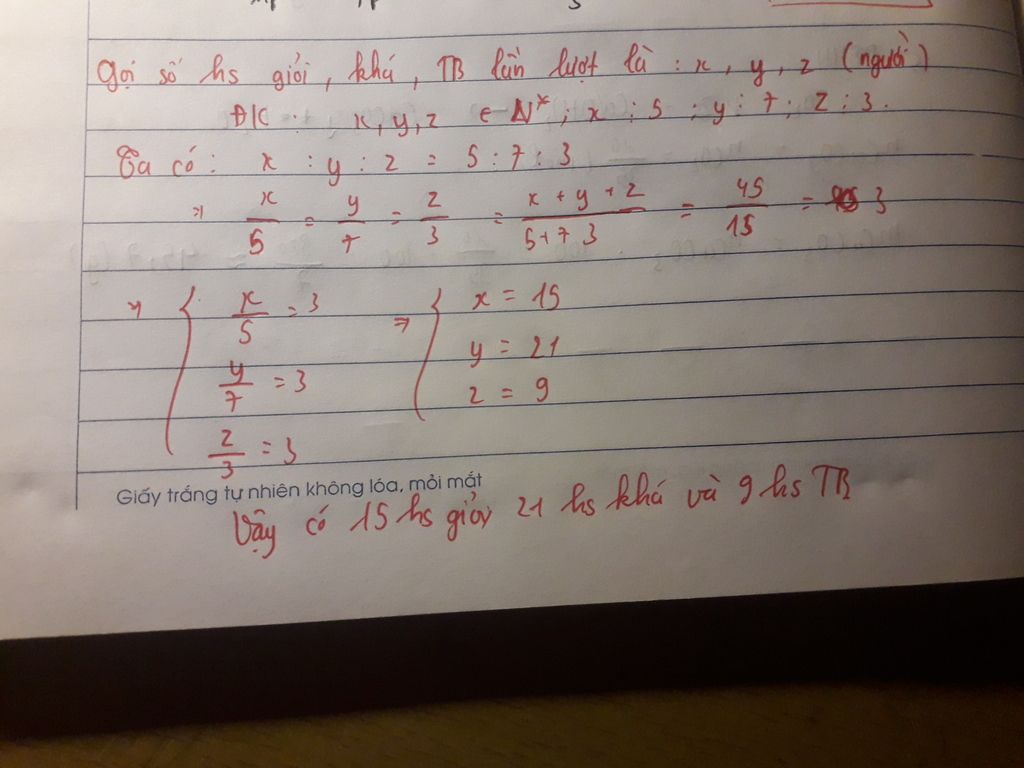 Gọi số hs giỏi, khá, TB lần lượt là : x, y, z (người)
ĐK : x, y, z ∈ N*; x : 5 ; y : 7 ; z : 3.
Ta có : x : y : z = 5 : 7 : 3
=> x/5 = y/7 = z/3 = x + y + z / 5+7 3 = 45/15 = 3
=> { x/5 = 3 => { x = 15
y/7 = 3 y = 21
z/3 = 3 z = 9
Giấy trắng tự nhiên không lóa, mỏi mắt
Vậy có 15 hs giỏi 21 hs khá và 9 hs TB